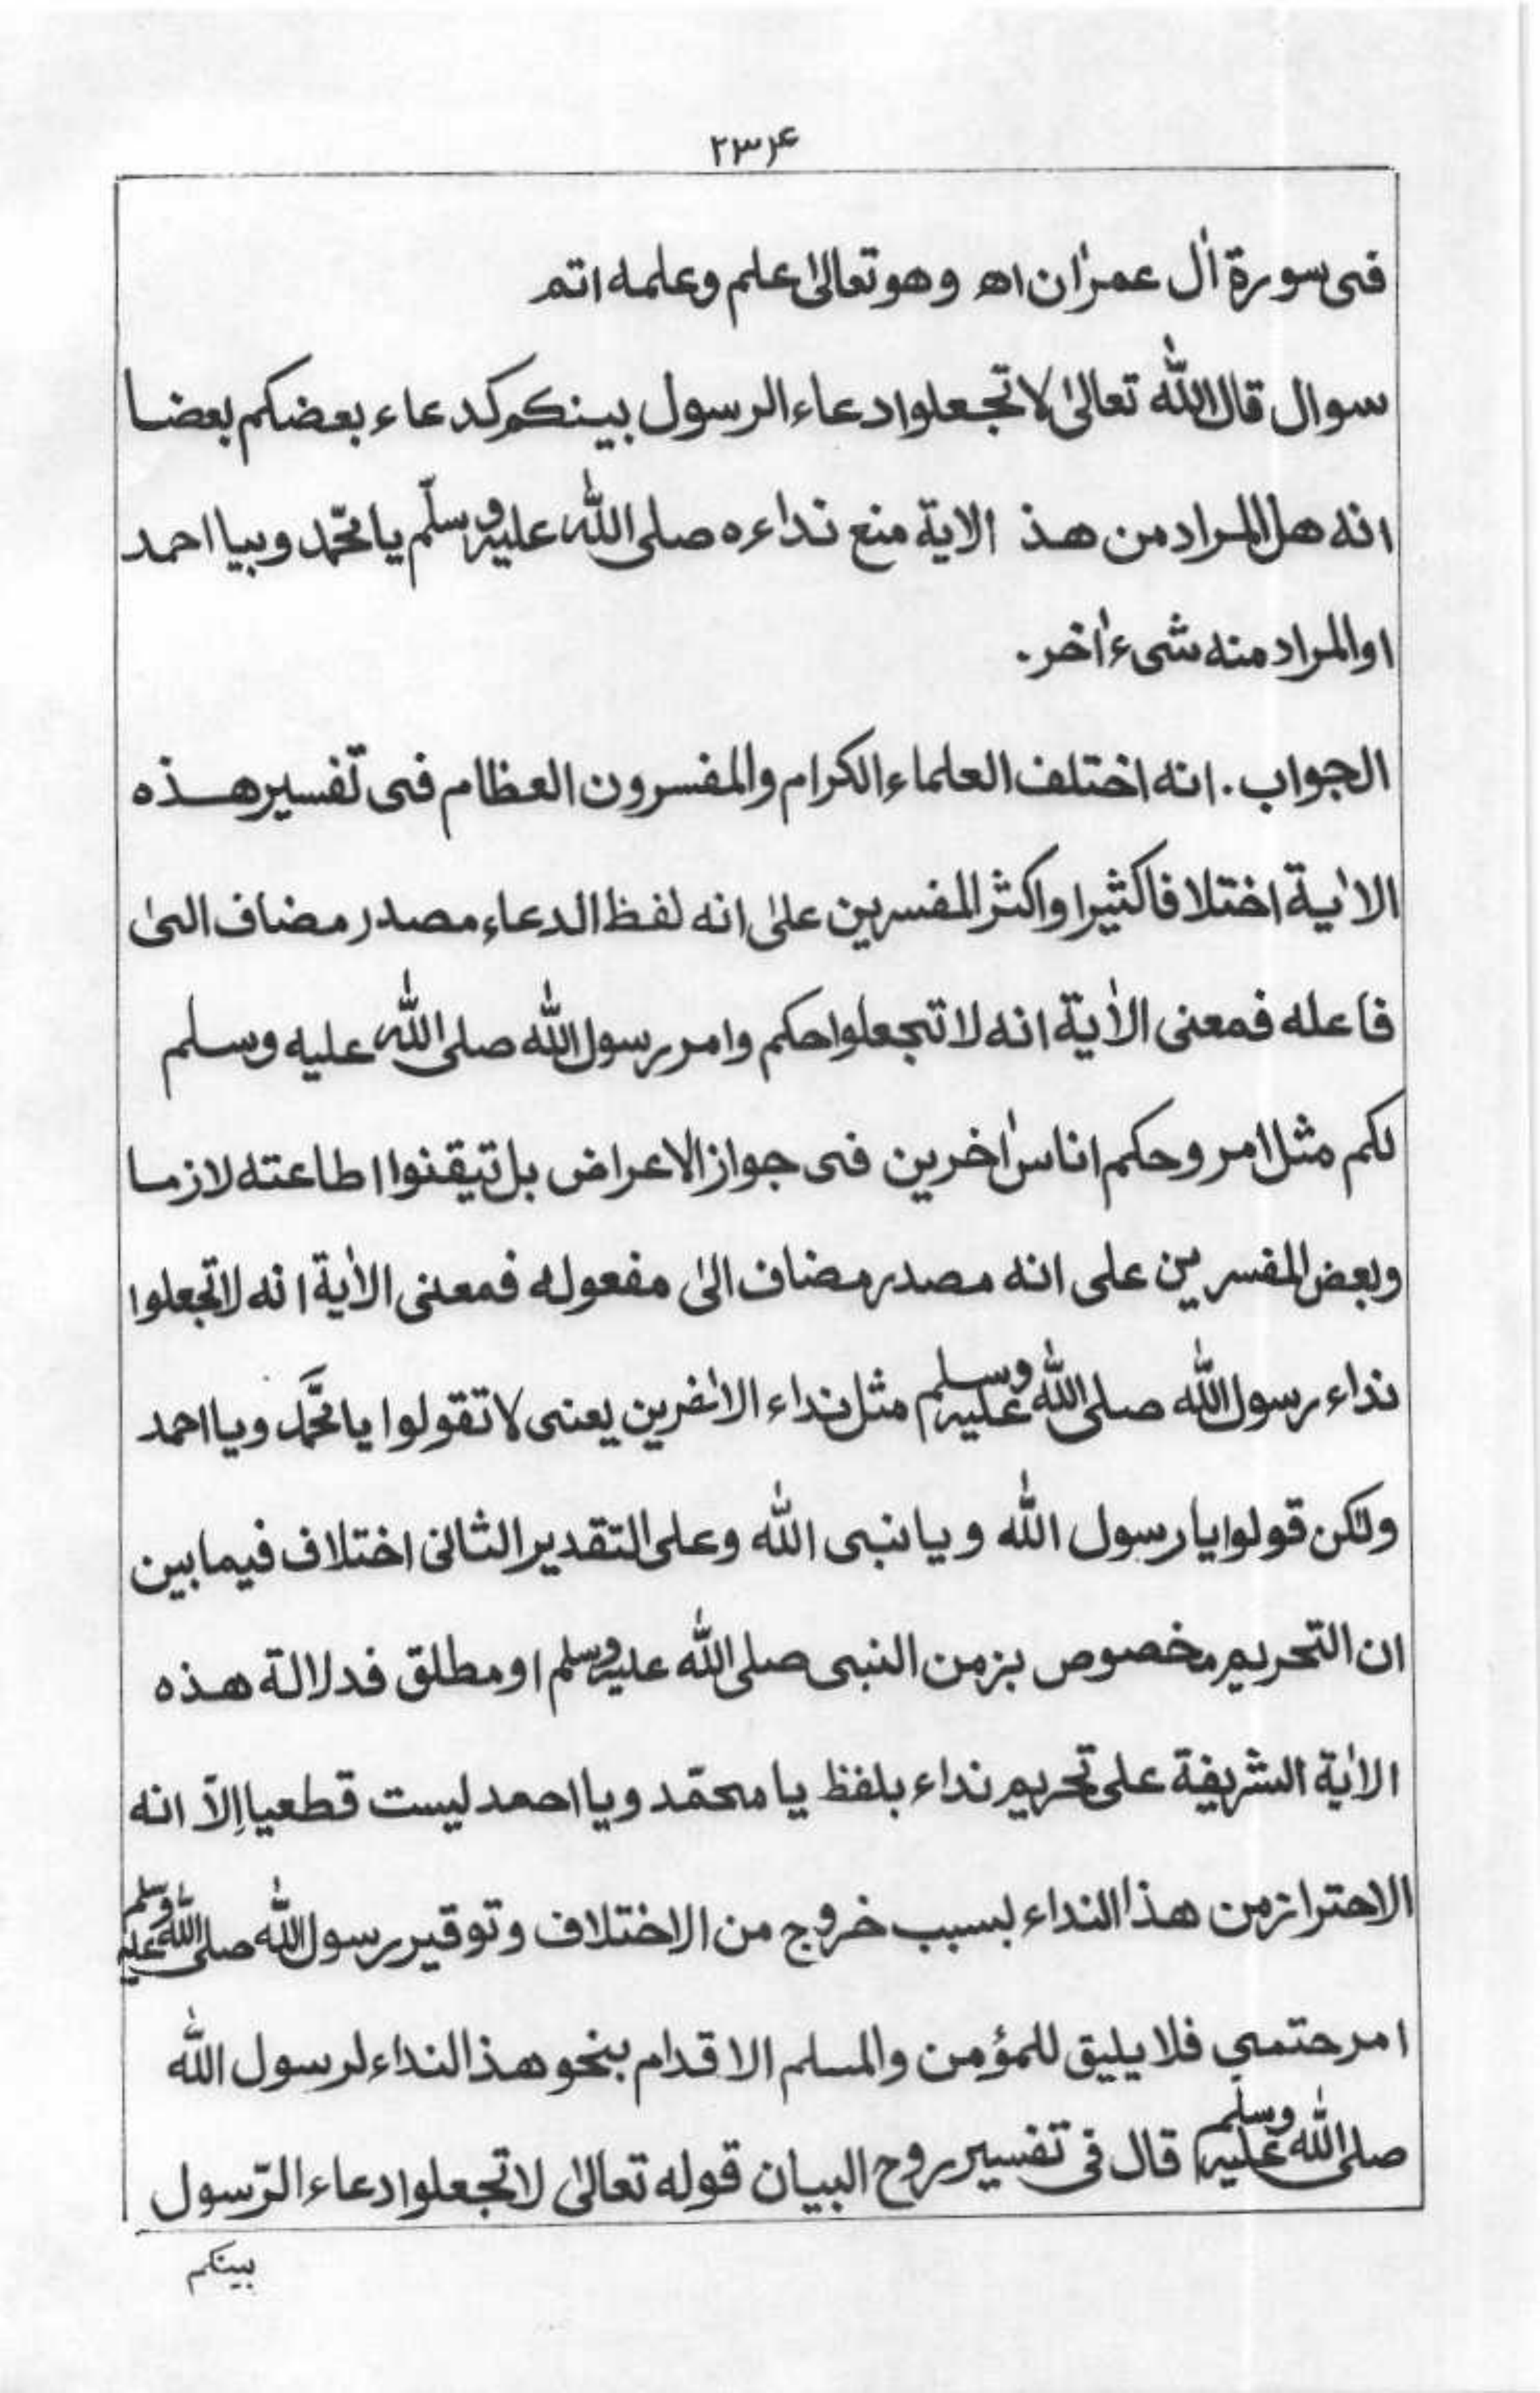 ۲۳۴
فی سورة اٰل عمرٰان اھ وھو تعالیٰ اعلم وعلمه اتم
سوال قال اللّٰه تعالیٰ لا تجعلوا دعاء الرسول بینکم کدعاء بعضکم بعضا
انه هل المراد من هذ الایة منع نداءه صلی اللّٰه علیه وسلّم یا محمّد وبیا احمد
او المراد منه شیء اٰخر۔
الجواب۔ انه اختلف العلماء الکرام والمفسرون العظام فی تفسیر هذه
الاٰیة اختلافا کثیرا واکثر المفسرین علیٰ انه لفظ الدعاء مصدر مضاف الیٰ
فاعله فمعنی الاٰیة انه لا تجعلوا حکم وامر رسول اللّٰه صلی اللّٰه علیه وسلم
لکم مثل امر وحکم اناس اٰخرین فی جواز الاعراض بل تیقنوا اطاعته لازما
وبعض المفسرین علی انه مصدر مضاف الیٰ مفعوله فمعنی الاٰیة انه لا تجعلوا
نداء رسول اللّٰه صلی اللّٰه علیه وسلم مثل نداء الاٰخرین یعنی لا تقولوا یا محمَّد ویا احمد
ولکن قولوا یا رسول اللّٰه ویا نبی اللّٰه وعلی التقدیر الثانی اختلاف فیما بین
ان التحریم مخصوص بزمن النبی صلی اللّٰه علیه وسلم او مطلق فدلالة هذه
الاٰیة الشریفة علی تحریم نداء بلفظ یا محمّد ویا احمد لیست قطعیا اِلّا انه
الاحتراز من هذا النداء بسبب خروج من الاختلاف وتوقیر رسول اللّٰه صلی اللّٰه علیه وسلم
امر حتمی فلا یلیق للمؤمن والمسلم الاقدام بنحو هذ النداء لرسول اللّٰه
صلی اللّٰه علیه وسلم قال فی تفسیر روح البیان قوله تعالیٰ لا تجعلوا دعاء الرّسول
بینکم